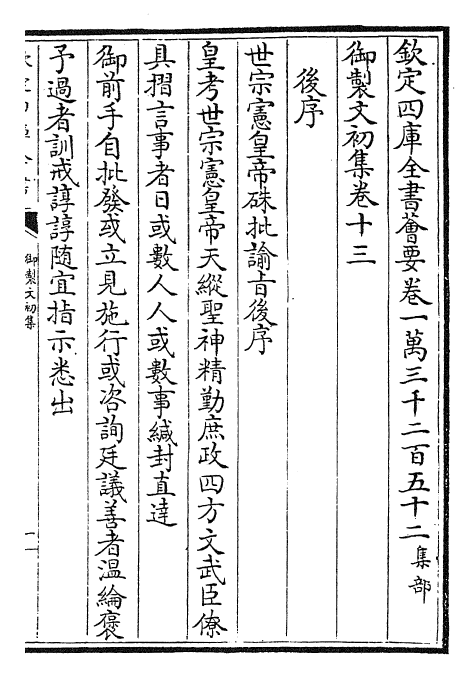 欽定四庫全書薈要卷一萬三千二百五十二集部
御製文初集卷十三
後序
世宗憲皇帝硃批諭旨後序
皇考世宗憲皇帝天縱聖神精勤庶政四方文武臣僚
具摺言事者日或數人人或數事緘封直達
御前手自批發或立見施行或咨詢廷議善者溫綸褒
予過者訓戒諄諄随宜指示悉出
御製文初集